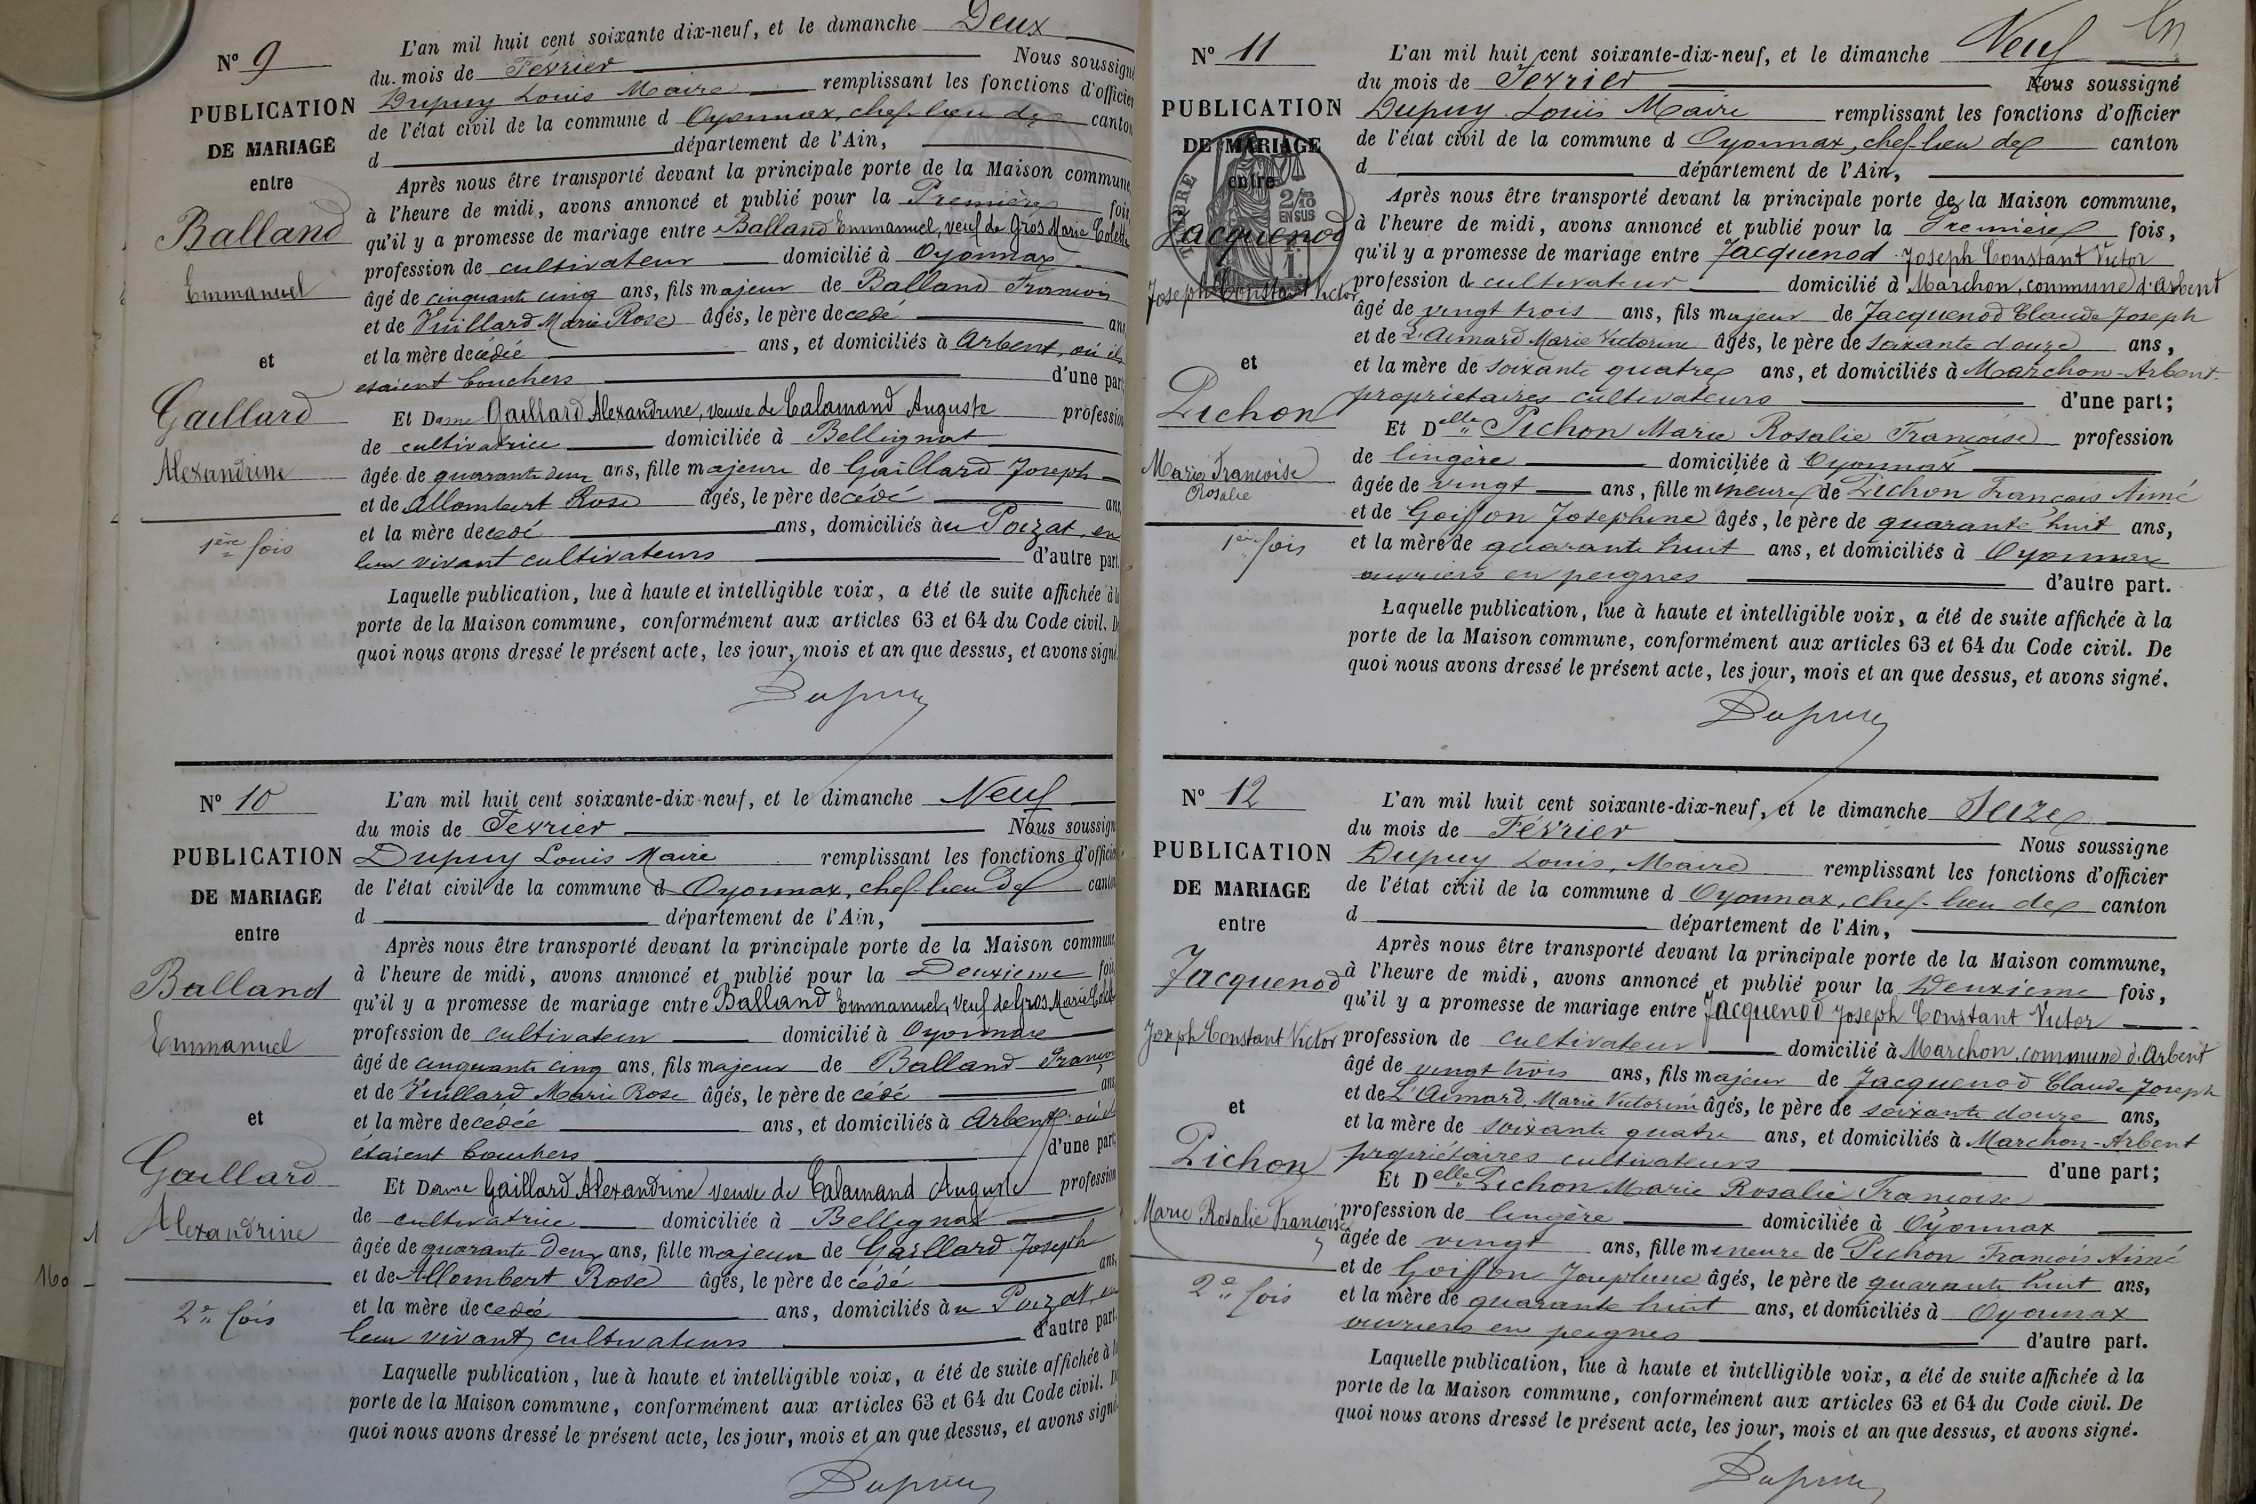 N° 9
PUBLICATION
DE MARIAGE
entre
Balland
Emmanuel
et
Gaillard
Alexandrine
1ère fois
L'an mil huit cent soixante dix-neuf, et le dimanche Deux
du mois de Février Nous soussigné
Dupuy Louis Maire remplissant les fonctions d'officier
de l'état civil de la commune d Oyonnax, chef-lieu de canton
d département de l'Ain,
Après nous être transporté devant la principale porte de la Maison commune,
à l'heure de midi, avons annoncé et publié pour la Première fois,
qu'il y a promesse de mariage entre Balland Emmanuel, veuf de Gros Marie Colette
profession de cultivateur domicilié à Oyonnax
âgé de cinquante cinq ans, fils majeur de Balland François
et de Vuillard Marie Rose âgés, le père decédé ans
et la mère decédée ans, et domiciliés à Arbent, où ils
étaient bouchers d'une part
Et Dame Gaillard Alexandrine, veuve de Calamand Auguste profession
de cultivatrice domiciliée à Bellignat
âgée de quarante deux ans, fille majeure de Gaillard Joseph
et de Allombert Rose âgés, le père decédé ans,
et la mère decedé ans, domiciliés àu Poizat, en
leur vivant cultivateurs d'autre part.
Laquelle publication, lue à haute et intelligible voix, a été de suite affichée à la
porte de la Maison commune, conformément aux articles 63 et 64 du Code civil. De
quoi nous avons dressé le présent acte, les jour, mois et an que dessus, et avons signé.
Dupuy
N° 10
PUBLICATION
DE MARIAGE
entre
Balland
Emmanuel
et
Gaillard
Alexandrine
160
2e fois
L'an mil huit cent soixante-dix-neuf, et le dimanche Neuf
du mois de Fevrier Nous soussigné
Dupuy Louis Maire remplissant les fonctions d'officier
de l'état civil de la commune d Oyonnax, chef lieu de canton
d département de l'Ain,
Après nous être transporté devant la principale porte de la Maison commune
à l'heure de midi, avons annoncé et publié pour la Deuxieme fois,
qu'il y a promesse de mariage entre Balland Emmanuel, Veuf de Gros Marie Colette
profession de cultivateur domicilié à Oyonnax
âgé de cinquante cinq ans, fils majeur de Balland François
et de Vuillard Marie Rose âgés, le père de cédé ans
et la mère decédée ans, et domiciliés à Arbent où ils
étaient bouchers d'une part
Et Dame Gaillard Alexandrine veuve de Calamand Auguste profession
de cultivatrice domiciliée à Bellignat
âgée de quarante deux ans, fille majeur de Gaillard Joseph
et de Allombert Rose âgés, le père de cédé ans,
et la mère decedée ans, domiciliés àu Poizat, en
leur vivant cultivateurs d'autre part.
Laquelle publication, lue à haute et intelligible voix, a été de suite affichée à la
porte de la Maison commune, conformément aux articles 63 et 64 du Code civil. De
quoi nous avons dressé le présent acte, les jour, mois et an que dessus, et avons signé.
Dupuy
N° 11
PUBLICATION
DE MARIAGE
entre
TIMBRE
2/10
EN SUS
Jacquenod
Joseph Constant Victor
et
Pichon
Marie Françoise
Rosalie
1ère fois
L'an mil huit cent soixante-dix-neuf, et le dimanche Neuf
du mois de Fevrier Nous soussigné
Dupuy Louis Maire remplissant les fonctions d'officier
de l'état civil de la commune d Oyonnax, chef-lieu de canton
d département de l'Ain,
Après nous être transporté devant la principale porte de la Maison commune,
à l'heure de midi, avons annoncé et publié pour la Première fois,
qu'il y a promesse de mariage entre Jacquenod Joseph Constant Victor
profession de cultivateur domicilié à Marchon, commune d'Arbent
âgé de vingt trois ans, fils majeur de Jacquenod Claude Joseph
et de L'Aimard Marie Victorine âgés, le père de soixante douze ans,
et la mère de soixante quatre ans, et domiciliés à Marchon-Arbent
propriétaires cultivateurs d'une part;
Et Delle Pichon Marie Rosalie Françoise profession
de lingère domiciliée à Oyonnax
âgée de vingt ans, fille mineure de Pichon François Aimé
et de Goiffon Josephine âgés, le père de quarante huit ans,
et la mère de quarante huit ans, et domiciliés à Oyonnax
ouvriers en peignes d'autre part.
Laquelle publication, lue à haute et intelligible voix, a été de suite affichée à la
porte de la Maison commune, conformément aux articles 63 et 64 du Code civil. De
quoi nous avons dressé le présent acte, les jour, mois et an que dessus, et avons signé.
Dupuy
N° 12
PUBLICATION
DE MARIAGE
entre
Jacquenod
Joseph Constant Victor
et
Pichon
Marie Rosalie Françoise
2e fois
L'an mil huit cent soixante-dix-neuf, et le dimanche Seize
du mois de Février Nous soussigne
Dupuy Louis, Maire remplissant les fonctions d'officier
de l'état civil de la commune d Oyonnax, chef-lieu de canton
d département de l'Ain,
Après nous être transporté devant la principale porte de la Maison commune,
à l'heure de midi, avons annoncé et publié pour la Deuxieme fois,
qu'il y a promesse de mariage entre Jacquenod Joseph Constant Victor
profession de cultivateur domicilié à Marchon, commune d'Arbent
âgé de vingt trois ans, fils majeur de Jacquenod Claude Joseph
et de L'Aimard, Marie Victorine âgés, le père de soixante douze ans,
et la mère de soixante quatre ans, et domiciliés à Marchon-Arbent
propriétaires cultivateurs d'une part;
Et Delle Pichon Marie Rosalie Françoise
profession de lingère domiciliée à Oyonnax
âgée de vingt ans, fille mineure de Pichon François Aimé
et de Goiffon Josephine âgés, le père de quarante huit ans,
et la mère de quarante huit ans, et domiciliés à Oyonnax
ouvriers en peignes d'autre part.
Laquelle publication, lue à haute et intelligible voix, a été de suite affichée à la
porte de la Maison commune, conformément aux articles 63 et 64 du Code civil. De
quoi nous avons dressé le présent acte, les jour, mois et an que dessus, et avons signé.
Dupuy